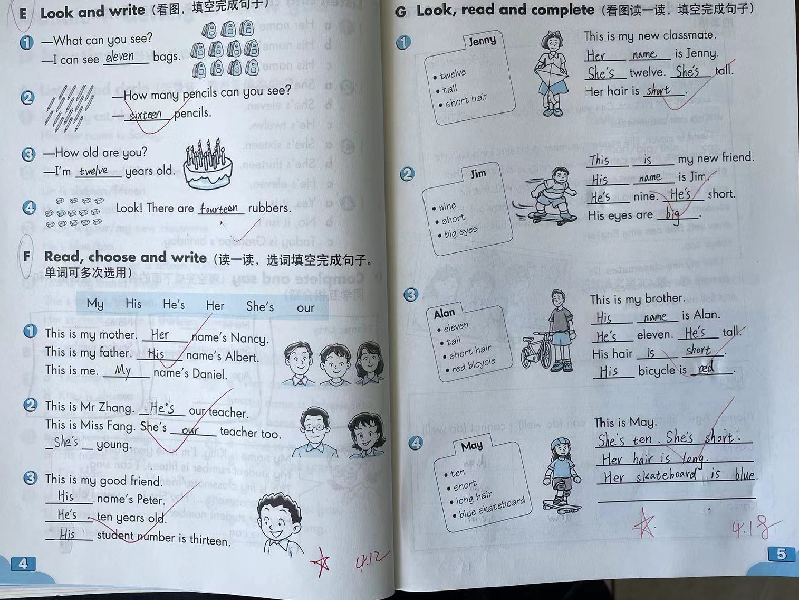 E Look and write (看图，填空完成句子)
1 —What can you see?
—I can see eleven bags.
2 —How many pencils can you see?
—sixteen pencils.
3 —How old are you?
—I'm twelve years old.
4 Look! There are fourteen rubbers.
F Read, choose and write (读一读，选词填空完成句子。
单词可多次选用)
My His He's Her She's our
1 This is my mother. Her name's Nancy.
This is my father. His name's Albert.
This is me. My name's Daniel.
2 This is Mr Zhang. He's our teacher.
This is Miss Fang. She's our teacher too.
She's young.
3 This is my good friend.
His name's Peter.
He's ten years old.
His student number is thirteen.
4.12
4
G Look, read and complete (看图读一读，填空完成句子)
1 Jenny
• twelve
• tall
• short hair
This is my new classmate.
Her name is Jenny.
She's twelve. She's tall.
Her hair is short.
2 Jim
• nine
• short
• big eyes
This is my new friend.
His name is Jim.
He's nine. He's short.
His eyes are big.
3 Alan
• eleven
• tall
• short hair
• red bicycle
This is my brother.
His name is Alan.
He's eleven. He's tall.
His hair is short.
His bicycle is red.
4 May
• ten
• short
• long hair
• blue skateboard
This is May.
She's ten. She's short.
Her hair is long.
Her skateboard is blue
4.18
5